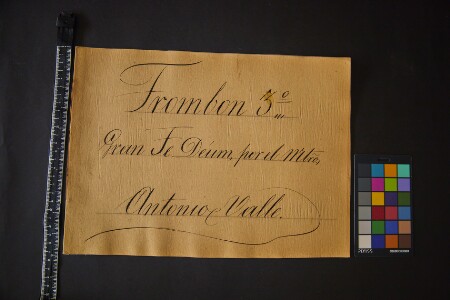 Trombon 3º
Gran Te Deum, por el Mtro,
Antonio Valle.